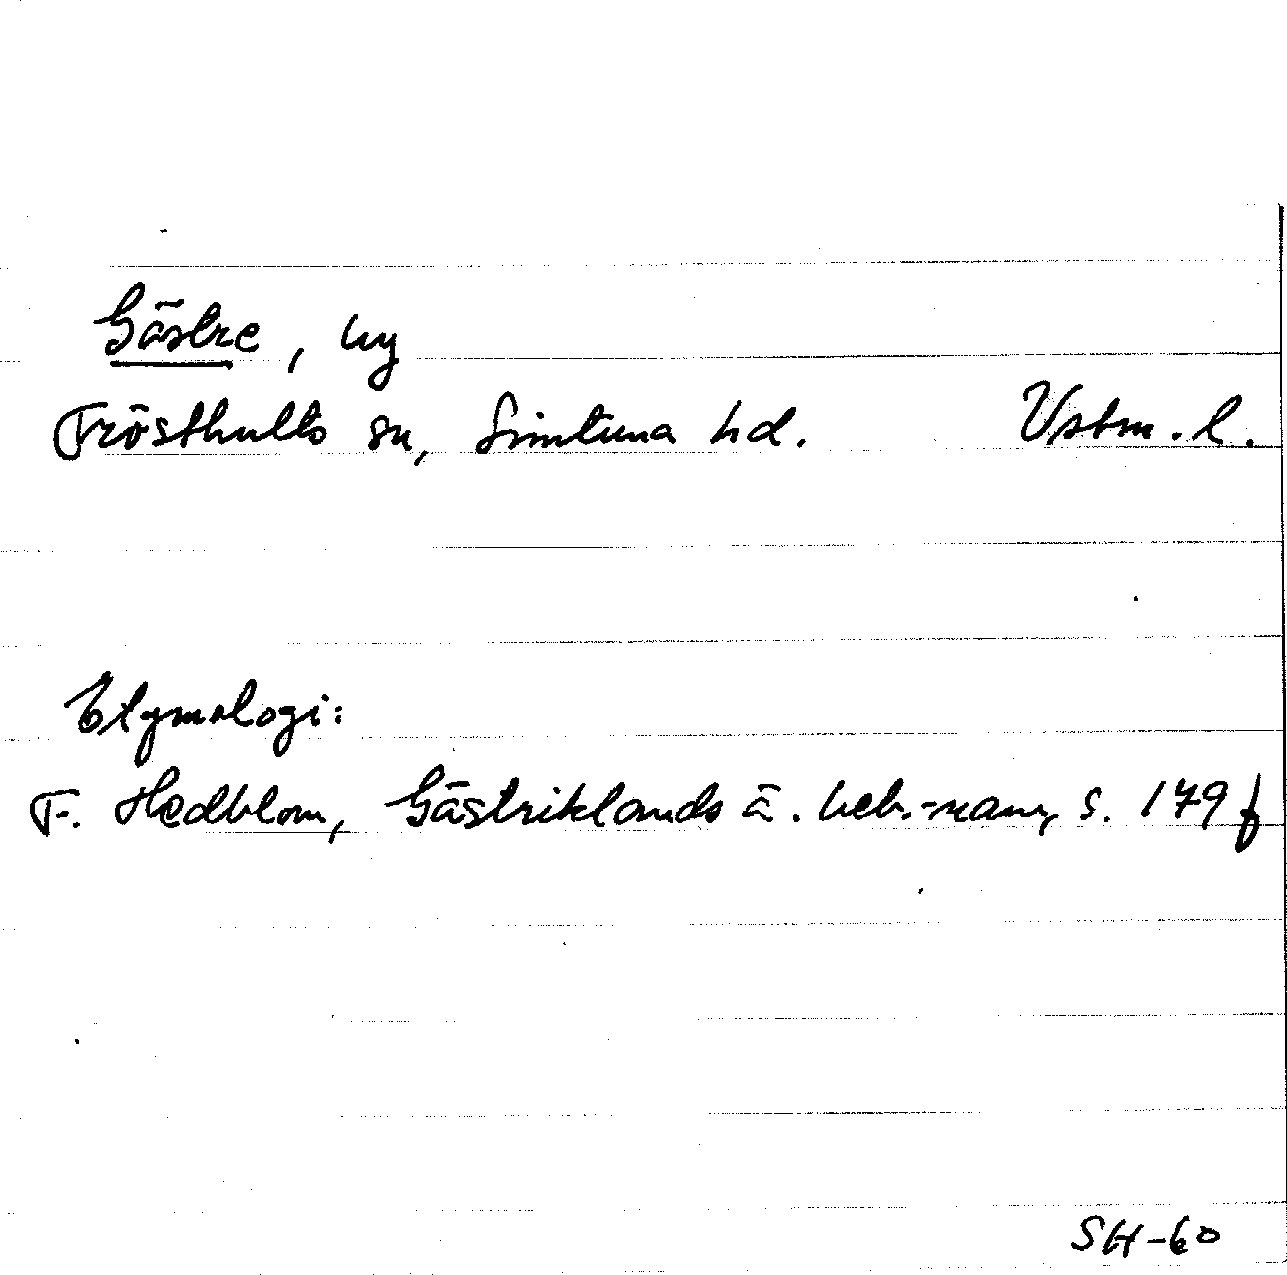 Gästre, by
Frösthults sn, Simtuna hd. Vstm. l.
Etymologi:
F. Hedblom, Gästriklands ä. beb.-namn, s. 179 f
SH-60